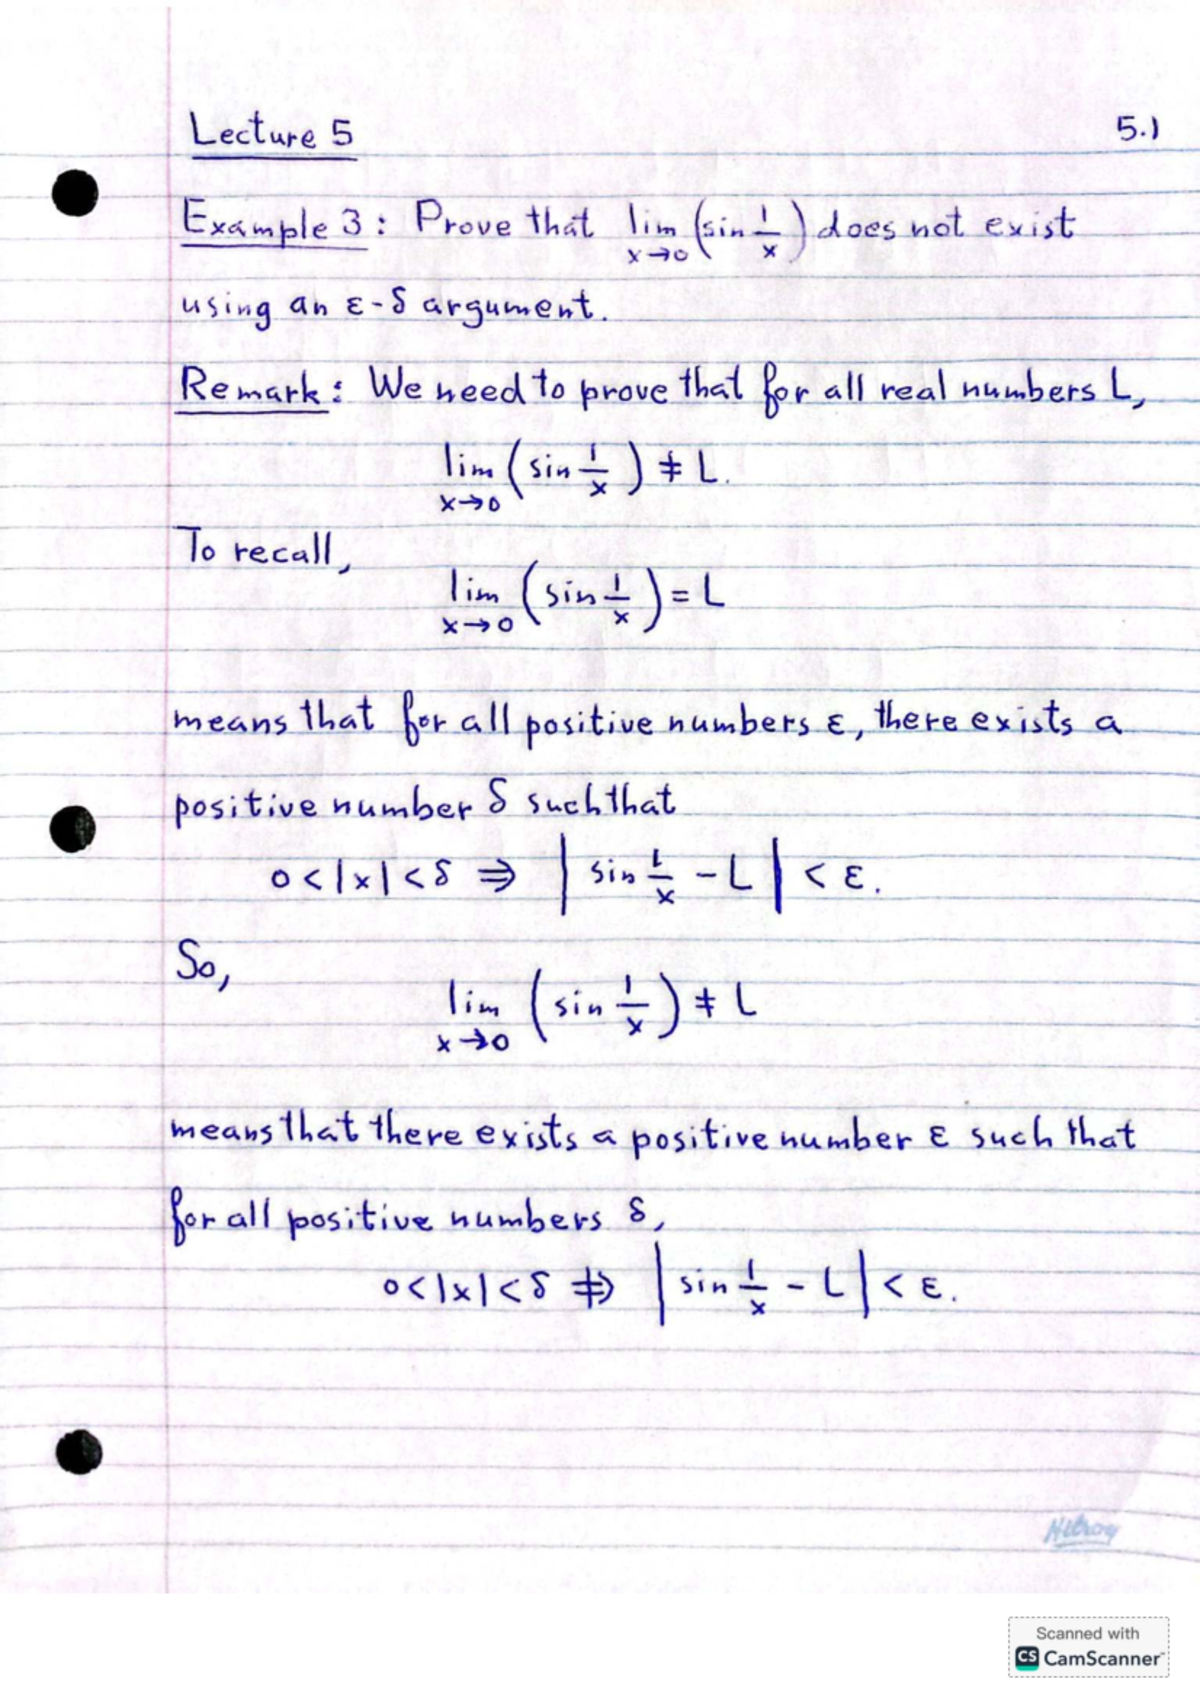 Lecture 5 5.1
Example 3: Prove that lim x→0 (sin 1/x) does not exist
using an ε-δ argument.
Remark: We need to prove that for all real numbers L,
lim x→0 (sin 1/x) ≠ L.
To recall,
lim x→0 (sin 1/x) = L
means that for all positive numbers ε, there exists a
positive number δ such that
0<|x|<δ ⇒ |sin 1/x - L| < ε.
So,
lim x→0 (sin 1/x) ≠ L
means that there exists a positive number ε such that
for all positive numbers δ,
0<|x|<δ ⇏ |sin 1/x - L| < ε.
Hilroy
Scanned with
CS CamScanner